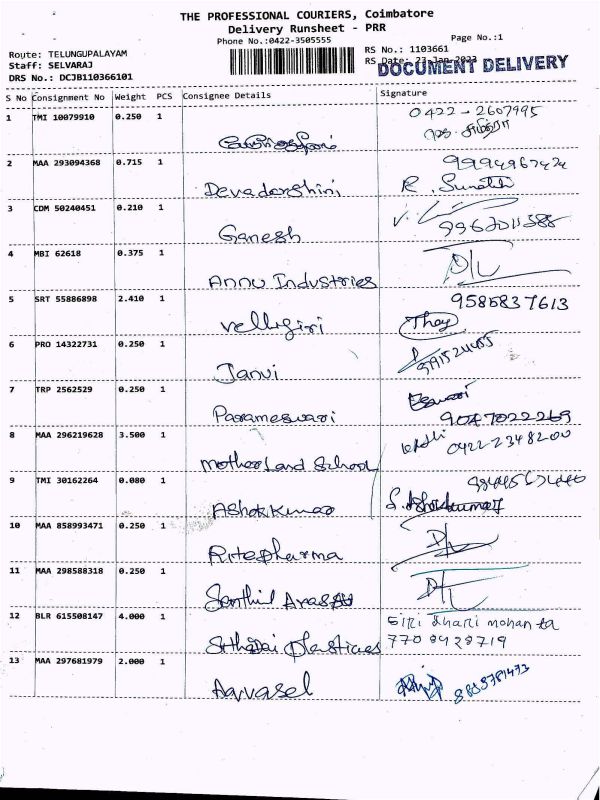 THE PROFESSIONAL COURIERS, Coimbatore
Delivery Runsheet - PRR
Phone No.:0422-3505555
Page No.:1
Route: TELUNGUPALAYAM
RS No.: 1103661
Staff: SELVARAJ
RS Date: 23-Jan-2023
DOCUMENT DELIVERY
DRS No.: DCJB110366101
S No Consignment No Weight PCS Consignee Details Signature
1 TMI 10079910 0.250 1 0422-2607995
2 MAA 293094368 0.715 1
Devadarshini R. Sumathi
3 CDM 50240451 0.210 1
Ganesh
4 MBI 62618 0.375 1 D/L
Annu Industries
5 SRT 55886898 2.410 1 9585837613
Velligiri Thay
6 PRO 14322731 0.250 1
Janvi
7 TRP 2562529 0.250 1
Parameswari 9047022269
8 MAA 296219628 3.500 1 0422-2348200
Mother Land School
9 TMI 30162264 0.080 1
AshokKumar S. Ashokkumar
10 MAA 858993471 0.250 1 D/L
Ritepharma
11 MAA 298588318 0.250 1 D/L
Senthil Arasu
12 BLR 615508147 4.000 1 Giri Dhari mohanta
Plasticues 7708928719
13 MAA 297681979 2.000 1
Aarvasel